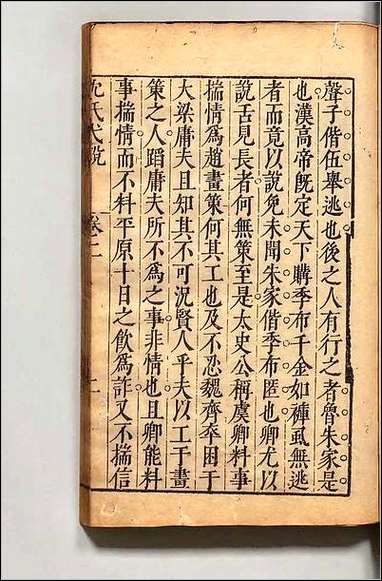 聲子偕伍舉逃也後之人有行之者魯朱家是
也漢高帝既定天下購季布千金如褲虱無逃
者而竟以說免未聞朱家偕季布匿也卿尤以
說舌見長者何無策至是太史公稱虞卿料事
揣情為趙畫策何其工也及不忍魏齊卒困于
大梁庸夫且知其不可況賢人乎夫以工于畫
策之人蹈庸夫所不為之事非情也且卿能料
事揣情而不料平原十日之飲為詐又不揣信
沈氏弋說 卷二 二